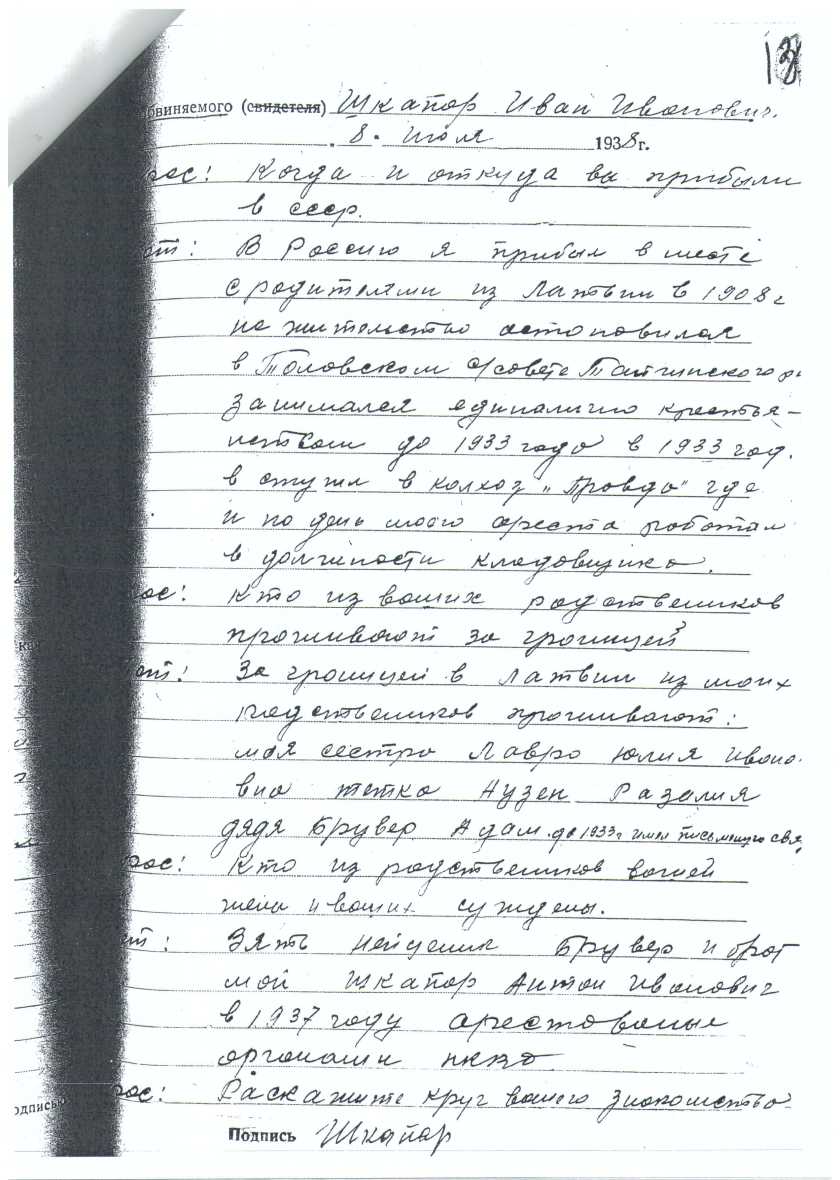 обвиняемого (свидетеля) Шкапор Иван Иванович.
8. июля 1938 г.
рос: Когда и откуда вы прибыли
в ссср.
от: В Россию я прибыл в месте
с родителями из Латвии в 1908 г
на жительство остановился
в с/совете
занимался единалично крестья-
нством до 1933 года в 1933 год.
в ступил в колхоз „Правда" где
и по день моего ареста работал
в должности кладовщика.
ос: Кто из ваших родствеников
проживают за границей?
от: За границей в Латвии из моих
родствеников проживают:
моя сестра Лавро Юлия Ивано.
вна тетка Нузен Разалия
дядя Брувер Адам. до 1933 г имел письменную свя.
рос: Кто из родствеников вашей
жены и ваших суждены.
т: Зять Брувер и брат
мой Шкапор Антон Иванович
в 1937 году арестованые
органами нквд
рос: Раскажите круг вашего знакомства
одпись
Подпись Шкапор